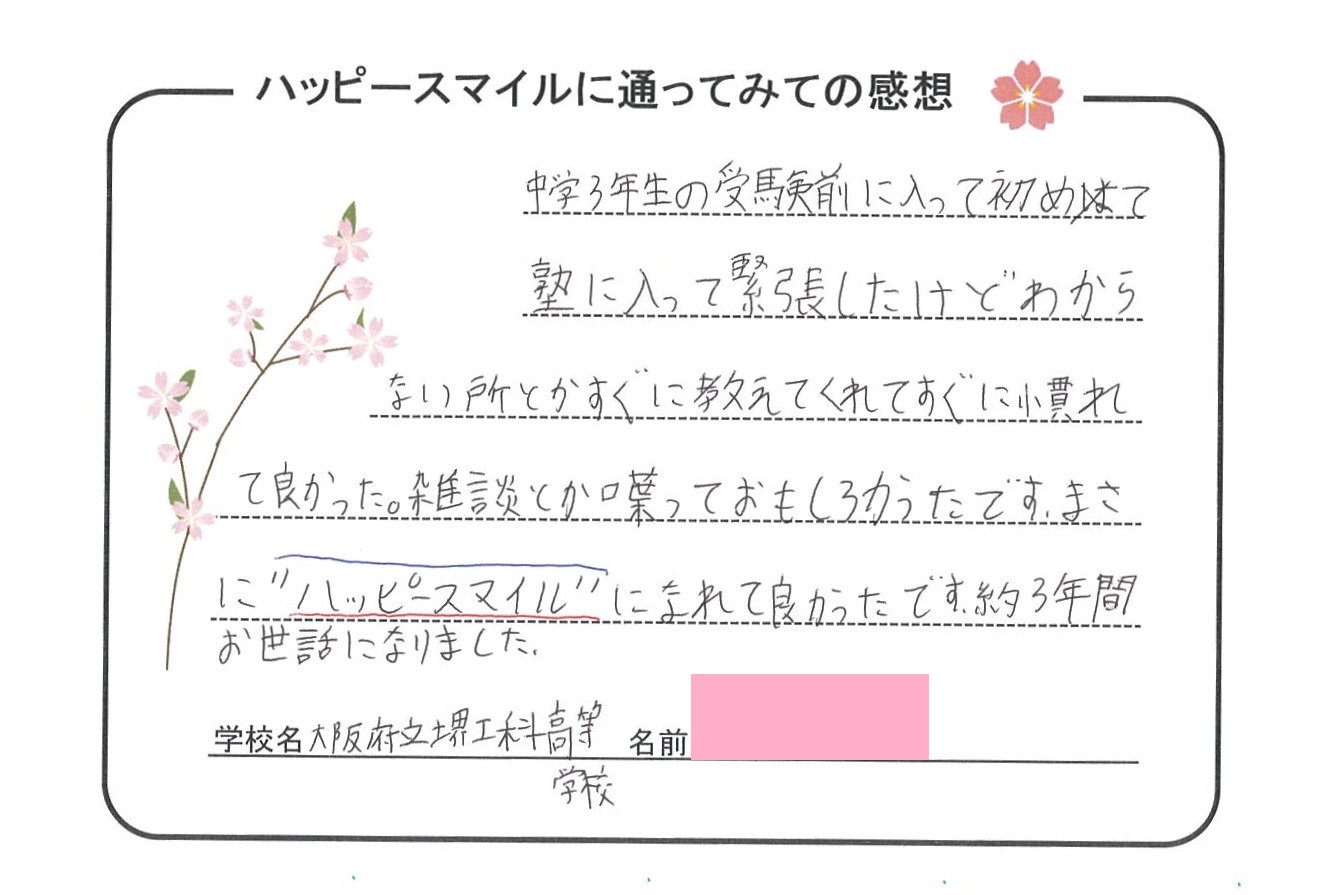 ハッピースマイルに通ってみての感想
中学3年生の受験前に入って初めて
塾に入って緊張したけどわから
ない所とかすぐに教えてくれてすぐに慣れ
て良かった。雑談とか喋っておもしろかったです。まさ
に"ハッピースマイル"になれて良かったです。約3年間
お世話になりました。
学校名 大阪府立堺工科高等 名前
学校